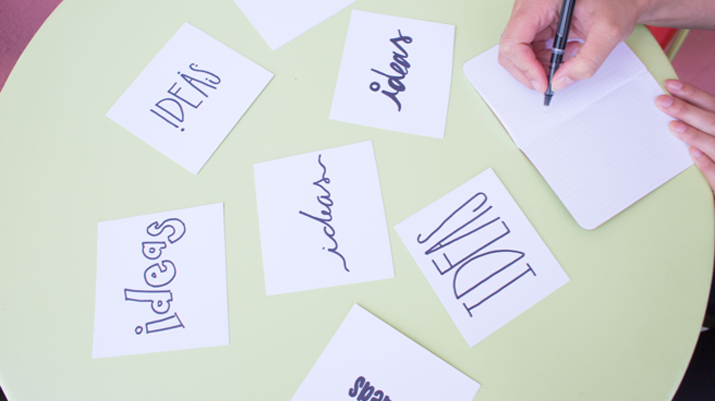 IDEAS
ideas
ideas
ideas
IDEAS
ideas